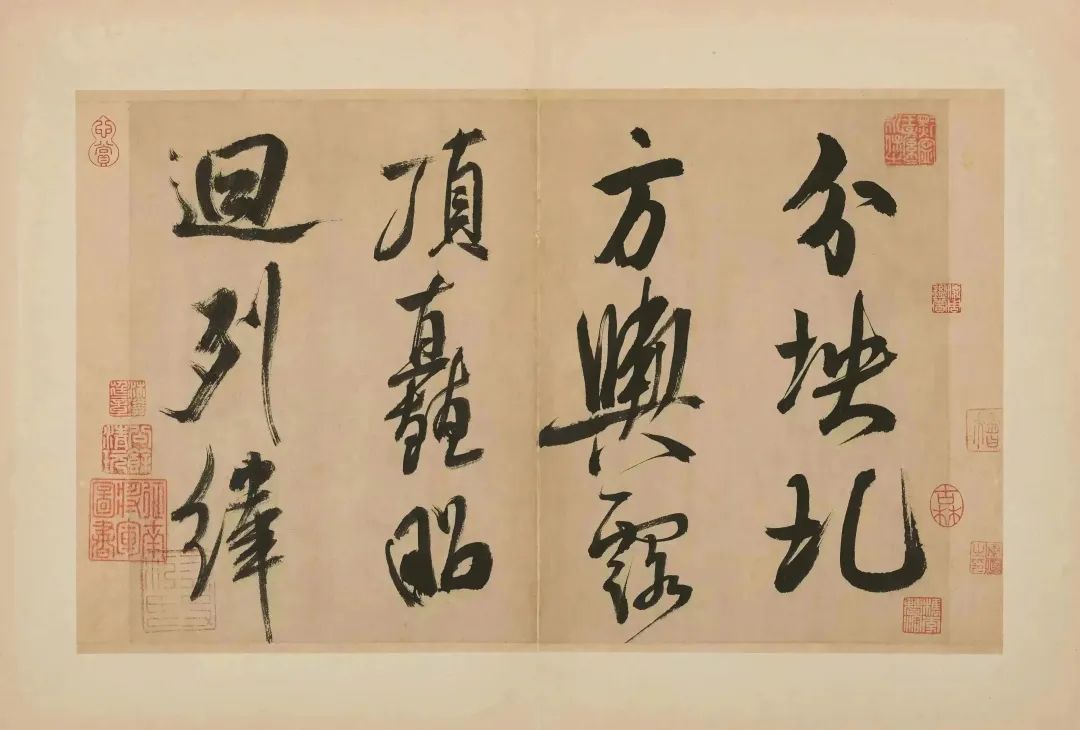 分坱圠
方輿露
頂矗昭
迴列緯